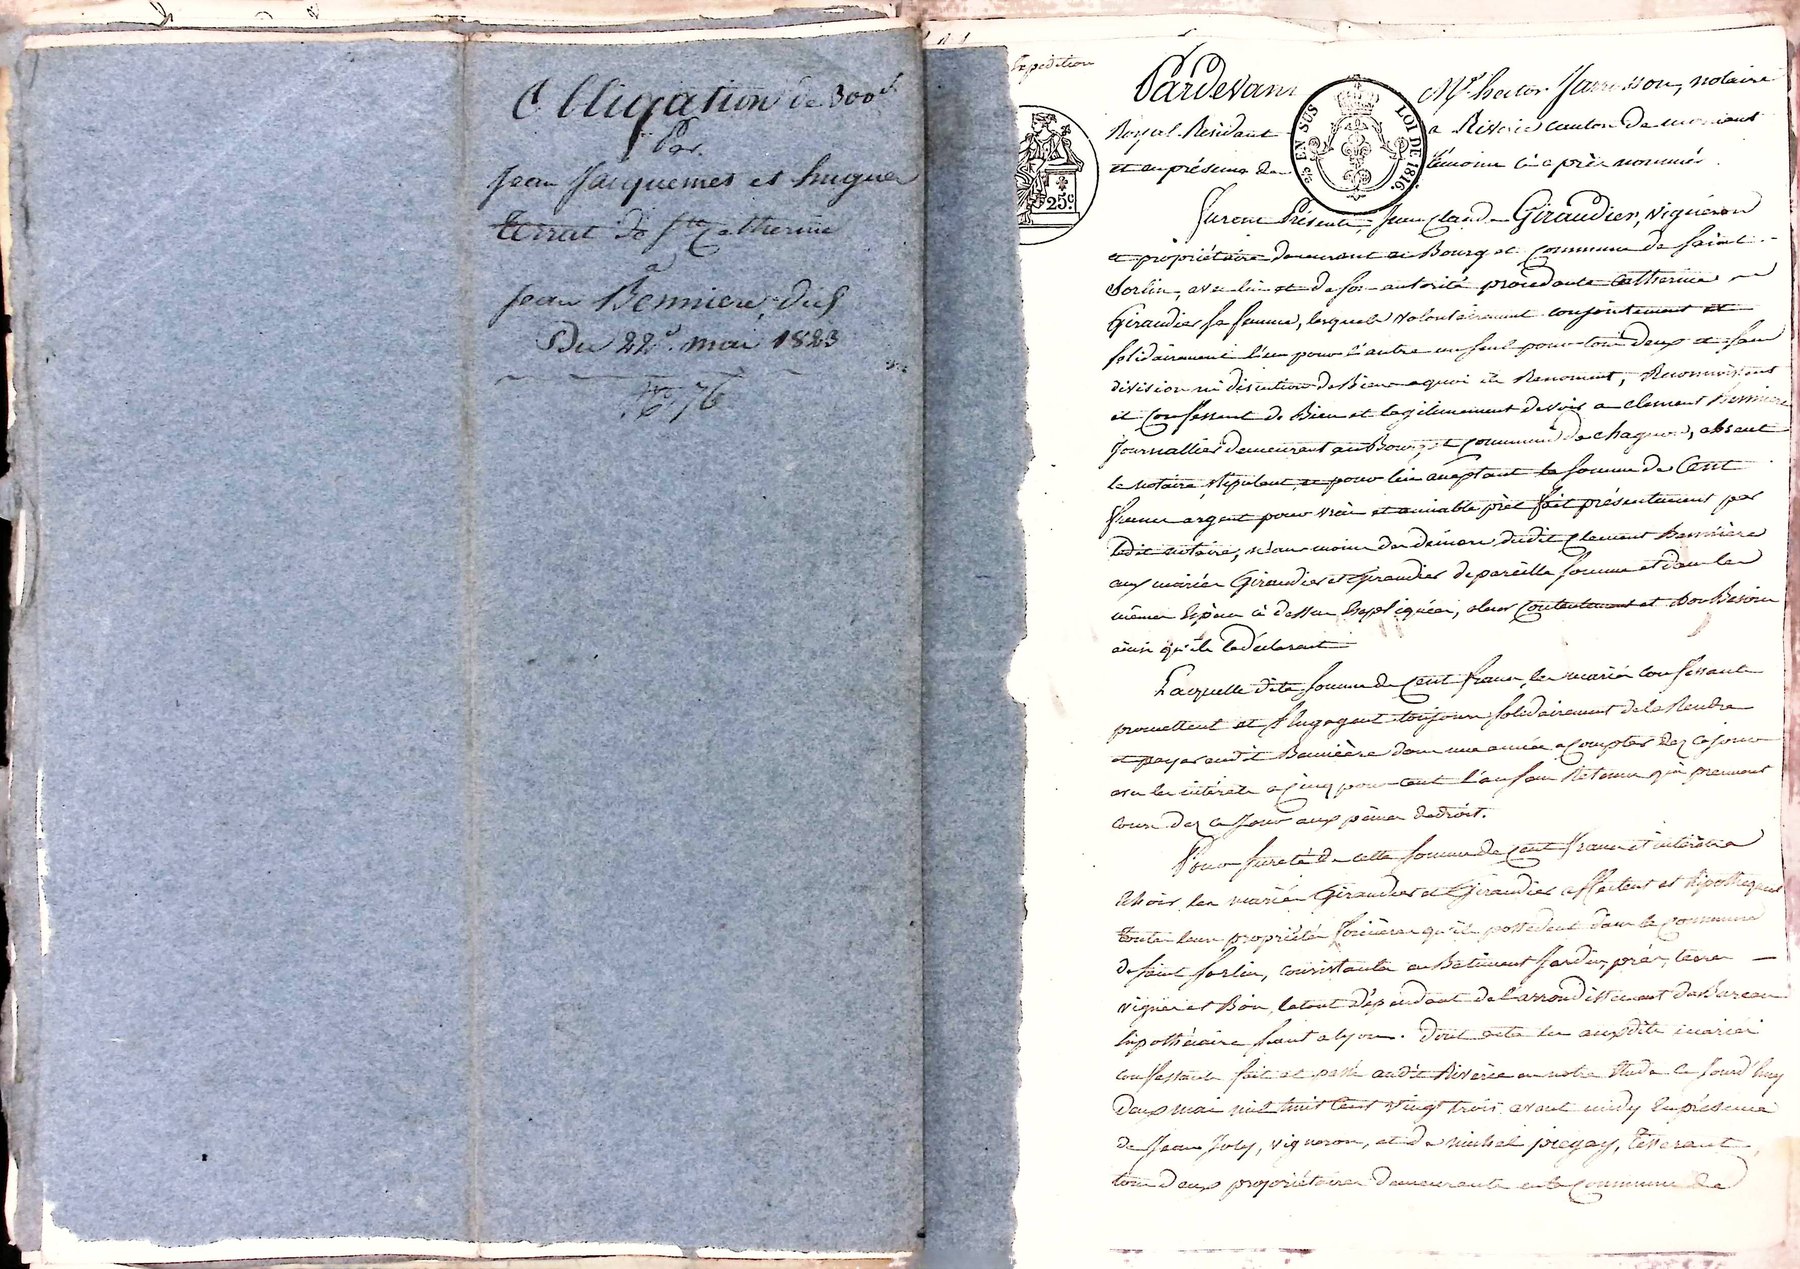 Obligation de 300f.
Par
Jean Jacquemet et hugues
terrat de Ste Catherine
à
Jean Bennière, dud.
Du 22 mai 1823
No 76
Expédition
25c.
EN SUS
LOI DE 1816.
Pardevant Me hector Jamesson, notaire
Royal Résidant a Riverie canton de mornant
et en présence des témoins ci après nommés.
Furent Présents, Jean Claude Giraudier, vigneron
et propriétaire demeurant au Bourg et Commune de Saint
Sorlin, avec lui et de son autorité procédante Catherine
Giraudier sa femme, lesquels volontairement conjointement et
solidairement l'un pour l'autre un seul pour tous deux et sans
division ni discution de Biens a quoi ils Renoncent, Reconnoissent
et Confessent de Bien et légitimement devoir a clement Bennière
Journallier demeurant au Bourg et commune de chagnon, absent
le notaire stipulant, et pour lui acceptant la somme de Cent
francs argent pour vrai et amiable prêt fait présentement par
ledit notaire, néanmoins des deniers dudit Clement Bennière
aux mariés Giraudier et Giraudier de pareille somme et dans les
mêmes Espèces ci dessus Expliquées, a leur Contentement et Bon Besoin
ainsi qu'ils le déclarent
Laquelle dite somme de Cent francs, les mariés Confessants
promettent et s'engagent toujours solidairement de la Rendre
et payer audit Bennière dans une année a compter dez ce jour
avec les intérêts a Cinq pour cent l'an sans Retenue qui prennent
cours dez ce Jour aux peines de droit.
Pour sureté de cette somme de Cent francs et intérêts a
Echoir les mariés Giraudier et Giraudier affectent et hipothequent
toutes leurs propriétés foncières qu'ils possèdent dans la commune
de saint Sorlin, consistante en Batiments Jardin, prés, terres
vignes et Bois, le tout dépendant de l'arrondissement du Bureau
hipothécaire séant a lyon. Dont acte lu auxdits mariés
confessants fait et passé audit Riverie en notre Etude ce Jourd'huy
Deux mai mil huit Cent vingt trois avant midy En présence
de Jean Joly, vigneron, et de michel piegay, tisserant,
tous deux propriétaires demeurants en la Commune de